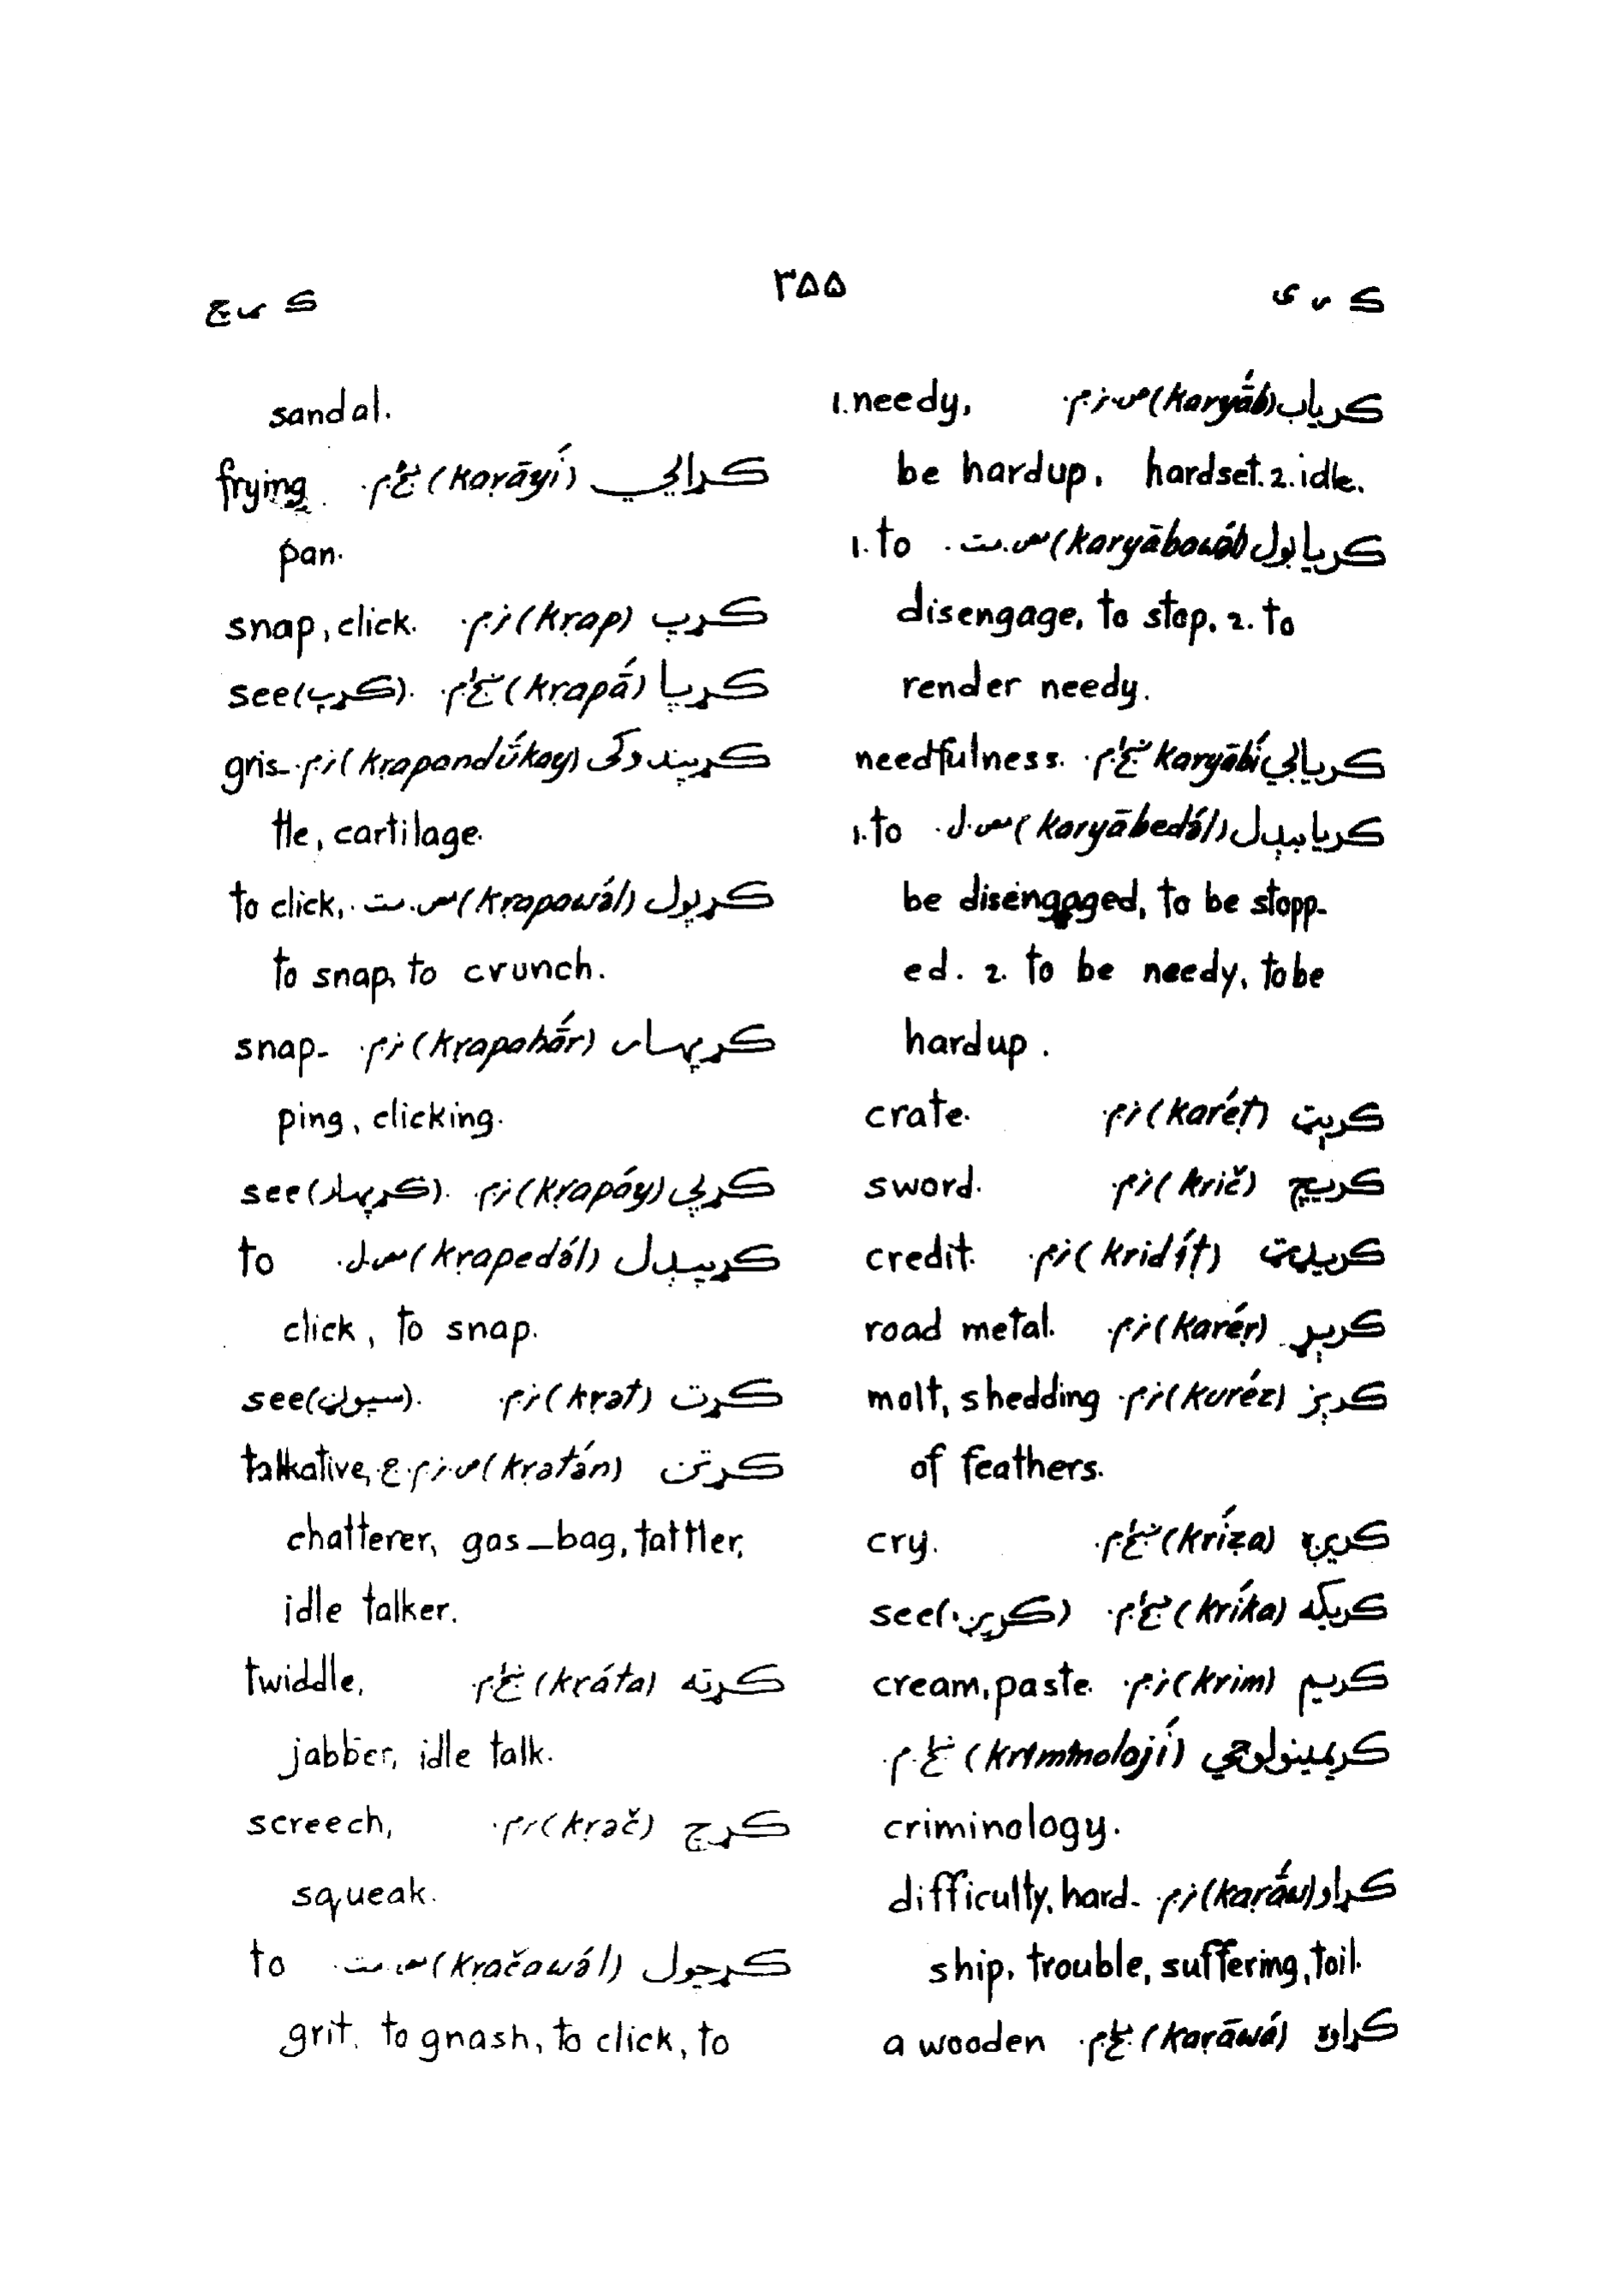 ک ر ی
۳۵۵
ک ړ چ
کریاب (karyā́b) ص.ن.م. 1.needy,
be hardup, hardset. 2. idle.
کریابول (karyābowә́l) س.ت. 1. to
disengage, to stop. 2. to
render needy.
کریابي karyābí ښځ.م. needfulness.
کریابېدل (karyābedә́l) س.ل. 1. to
be disengaged, to be stopp-
ed. 2. to be needy, to be
hardup.
کرېټ (karéṭ) ن.م. crate.
کریچ (krič) ن.م. sword.
کریډیټ (kridíṭ) ن.م. credit.
کرېړ (karéṛ) ن.م. road metal.
کرېز (kuréz) ن.م. molt, shedding
of feathers.
کریږه (kríẓa) ښځ.م. cry.
کریکه (kríka) ښځ.م. see (کریږه)
کریم (krim) ن.م. cream, paste.
کریمینولوجي (kriminolojí) ښځ.م.
criminology.
کړاو (kaṛā́w) ن.م. difficulty, hard-
ship, trouble, suffering, toil.
کړاوه (kaṛāwá) ښځ.م. a wooden
sandal.
کړايي (kaṛāyí) ښځ.م. frying
pan.
کړپ (kṛap) ن.م. snap, click.
کړپا (kṛapā́) ښځ.م. see (کړپ).
کړپندوکی (kṛapandū́kay) ن.م. gris-
tle, cartilage.
کړپول (kṛapawә́l) س.ت. to click,
to snap, to crunch.
کړپهار (kṛapahā́r) ن.م. snap-
ping, clicking.
کړپی (kṛapáy) ن.م. see (کړپهار).
کړپېدل (kṛapedә́l) س.ل. to
click, to snap.
کړت (kṛәt) ن.م. see (سیوری).
کړتن (kṛatán) ص.ن.م.ع. talkative,
chatterer, gas-bag, tattler,
idle talker.
کړته (kṛáta) ښځ.م. twiddle,
jabber, idle talk.
کړچ (kṛәč) ن.م. screech,
squeak.
کړچول (kṛačawә́l) س.ت. to
grit, to gnash, to click, to